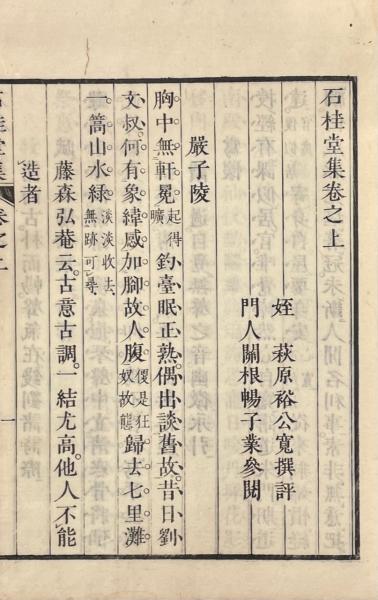 石桂堂集卷之上
姪 萩原裕公寬撰評
門人關根暢子業參閱
嚴子陵
胸中無軒冕起得曠釣臺眠正熟偶出談舊故昔日劉
文叔何有象緯感加腳故人腹儍是狂奴故態歸去七里灘
一篙山水綠淡淡收去無跡可尋
藤森弘菴云古意古調一結尤高他人不能
造者
石桂堂集 卷之上
一